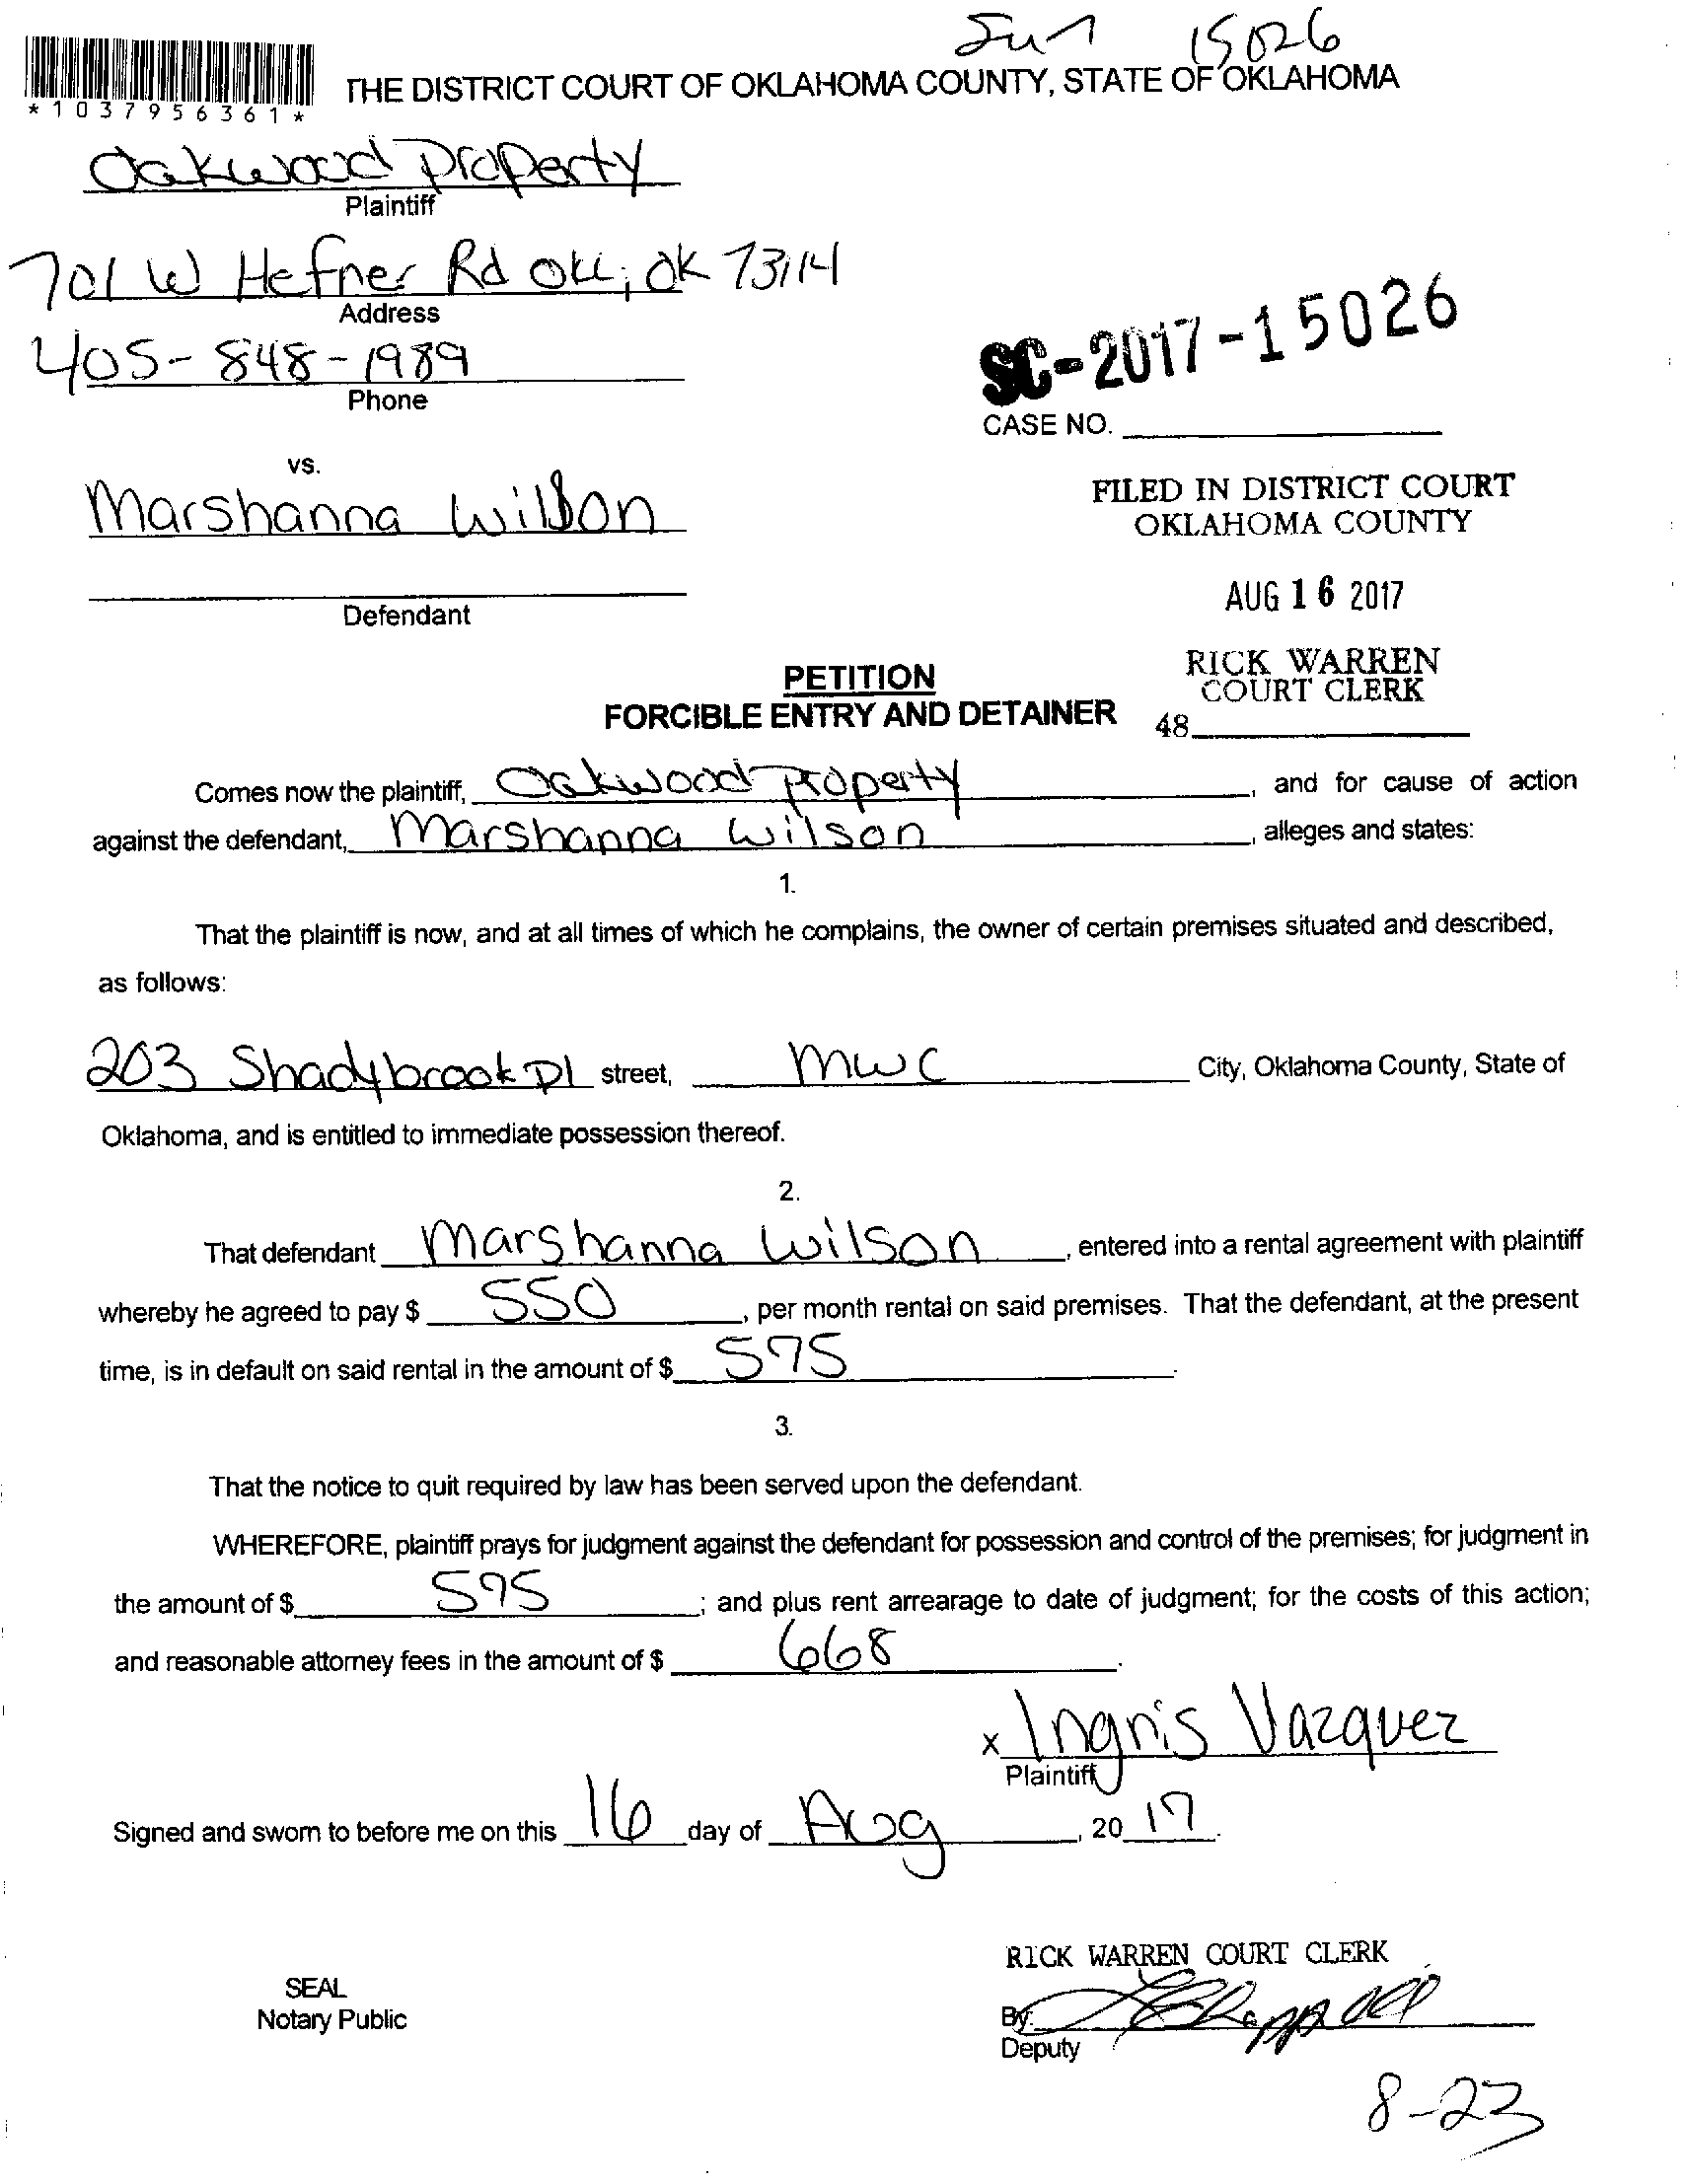 15026
*1037956361*
THE DISTRICT COURT OF OKLAHOMA COUNTY, STATE OF OKLAHOMA
Oakwood Property
Plaintiff
701 W Hefner Rd OKC, OK 73114
Address
405-848-1989
Phone
SC-2017-15026
CASE NO.
vs.
Marshanna Wilson
FILED IN DISTRICT COURT
OKLAHOMA COUNTY
AUG 16 2017
Defendant
RICK WARREN
COURT CLERK
48
PETITION
FORCIBLE ENTRY AND DETAINER
Comes now the plaintiff, Oakwood Property, and for cause of action
against the defendant, Marshanna Wilson, alleges and states:
1.
That the plaintiff is now, and at all times of which he complains, the owner of certain premises situated and described,
as follows:
203 Shadybrook Pl street, MWC City, Oklahoma County, State of
Oklahoma, and is entitled to immediate possession thereof.
2.
That defendant Marshanna Wilson, entered into a rental agreement with plaintiff
whereby he agreed to pay $ 550, per month rental on said premises. That the defendant, at the present
time, is in default on said rental in the amount of $ 595.
3.
That the notice to quit required by law has been served upon the defendant.
WHEREFORE, plaintiff prays for judgment against the defendant for possession and control of the premises; for judgment in
the amount of $ 595; and plus rent arrearage to date of judgment; for the costs of this action;
and reasonable attorney fees in the amount of $ 668.
x Ingris Vazquez
Plaintiff
Signed and sworn to before me on this 16 day of Aug, 20 17.
RICK WARREN COURT CLERK
SEAL
Notary Public
By:
Deputy
8-23